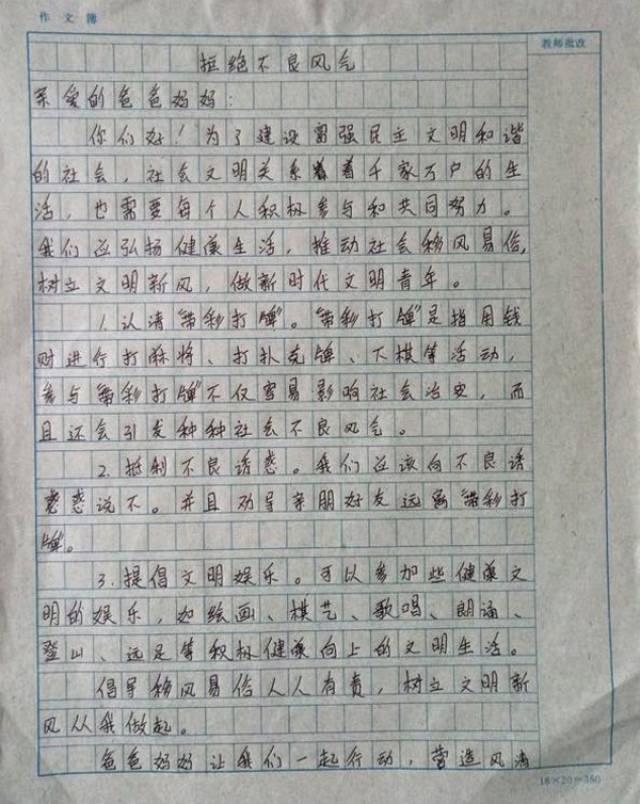 作文簿
教师批改
拒绝不良风气
亲爱的爸爸妈妈：
你们好！为了建设富强民主文明和谐
的社会，社会文明关系着千家万户的生
活，也需要每个人积极参与和共同努力。
我们应弘扬健康生活，推动社会移风易俗，
树立文明新风，做新时代文明青年。
1.认清“带彩打牌”。“带彩打牌”是指用钱
财进行打麻将、打扑克牌、下棋等活动，
参与“带彩打牌”不仅容易影响社会治安，而
且还会引发种种社会不良风气。
2.抵制不良诱惑。我们应该向不良诱
惑说不。并且劝导亲朋好友远离“带彩打
牌”。
3.提倡文明娱乐。可以参加些健康文
明的娱乐，如绘画、棋艺、歌唱、朗诵、
登山、远足等积极健康向上的文明生活。
倡导移风易俗人人有责，树立文明新
风从我做起。
爸爸妈妈让我们一起行动，营造风清
18×20=360